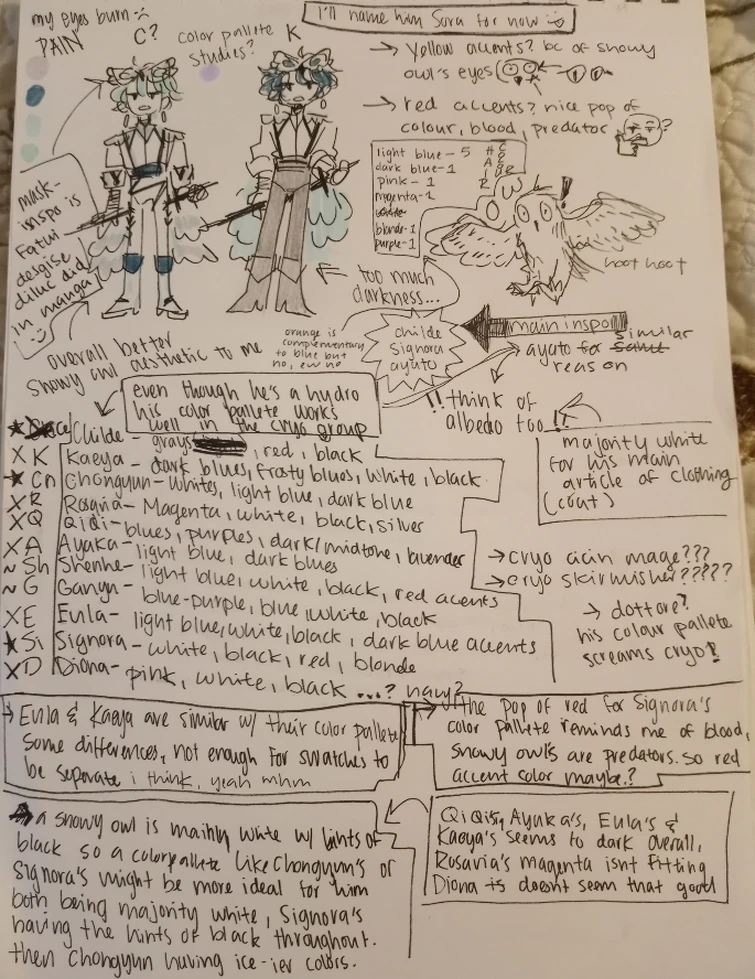 my eyes burn
PAIN
C?
color pallete
studies?
K
I'll name him Sora for now
→ Yellow accents? bc of snowy
owl's eyes
→ red accents? nice pop of
colour, blood, predator
?
light blue - 5
dark blue - 1
pink - 1
magenta - 1
white
blonde - 1
purple - 1
HAIR
hoot hoot
mask-
inspo is
Fatui
desgise
diluc did
in manga
overall better
snowy owl aesthetic to me
← too much
darkness...
orange is
complementary
to blue but
no, ew no
childe
Signora
ayato
main inspo
ayato for same similar
reason
!! think of
albedo too !!
majority white
for his main
article of clothing
(coat)
even though he's a hydro
his color pallete works
well in the cryo group
★ Childe - grays, red, black
X K Kaeya - dark blues, frosty blues, white, black
★ Cn Chongyun - whites, light blue, dark blue
X R Rosaria - Magenta, white, black, silver
X Q QiQi - blues, purples, dark/midtone, lavender
X A Ayaka - light blue, dark blues
~ Sh Shenhe - light blue, white, black, red accents
~ G Ganyu - blue-purple, blue, white, black
X E Eula - light blue, white, black, dark blue accents
★ Si Signora - white, black, red, blonde
X D Diona - pink, white, black ...? navy?
→ cryo cicin mage???
→ cryo skirmisher?????
→ dottore?
his colour pallete
screams cryo!
→ Eula & Kaeya are similar w/ their color pallete
some differences, not enough for swatches to
be seperate i think, yeah mhm
the pop of red for Signora's
color pallete reminds me of blood,
snowy owls are predators. so red
accent color maybe?
a snowy owl is mainly white w/ hints of
black so a color pallete like Chongyun's or
Signora's might be more ideal for him
both being majority white, Signora's
having the hints of black throughout.
then Chongyun having ice-ier colors.
QiQi's, Ayaka's, Eula's &
Kaeya's seems to dark overall,
Rosavia's magenta isnt fitting
Diona is doesnt seem that good